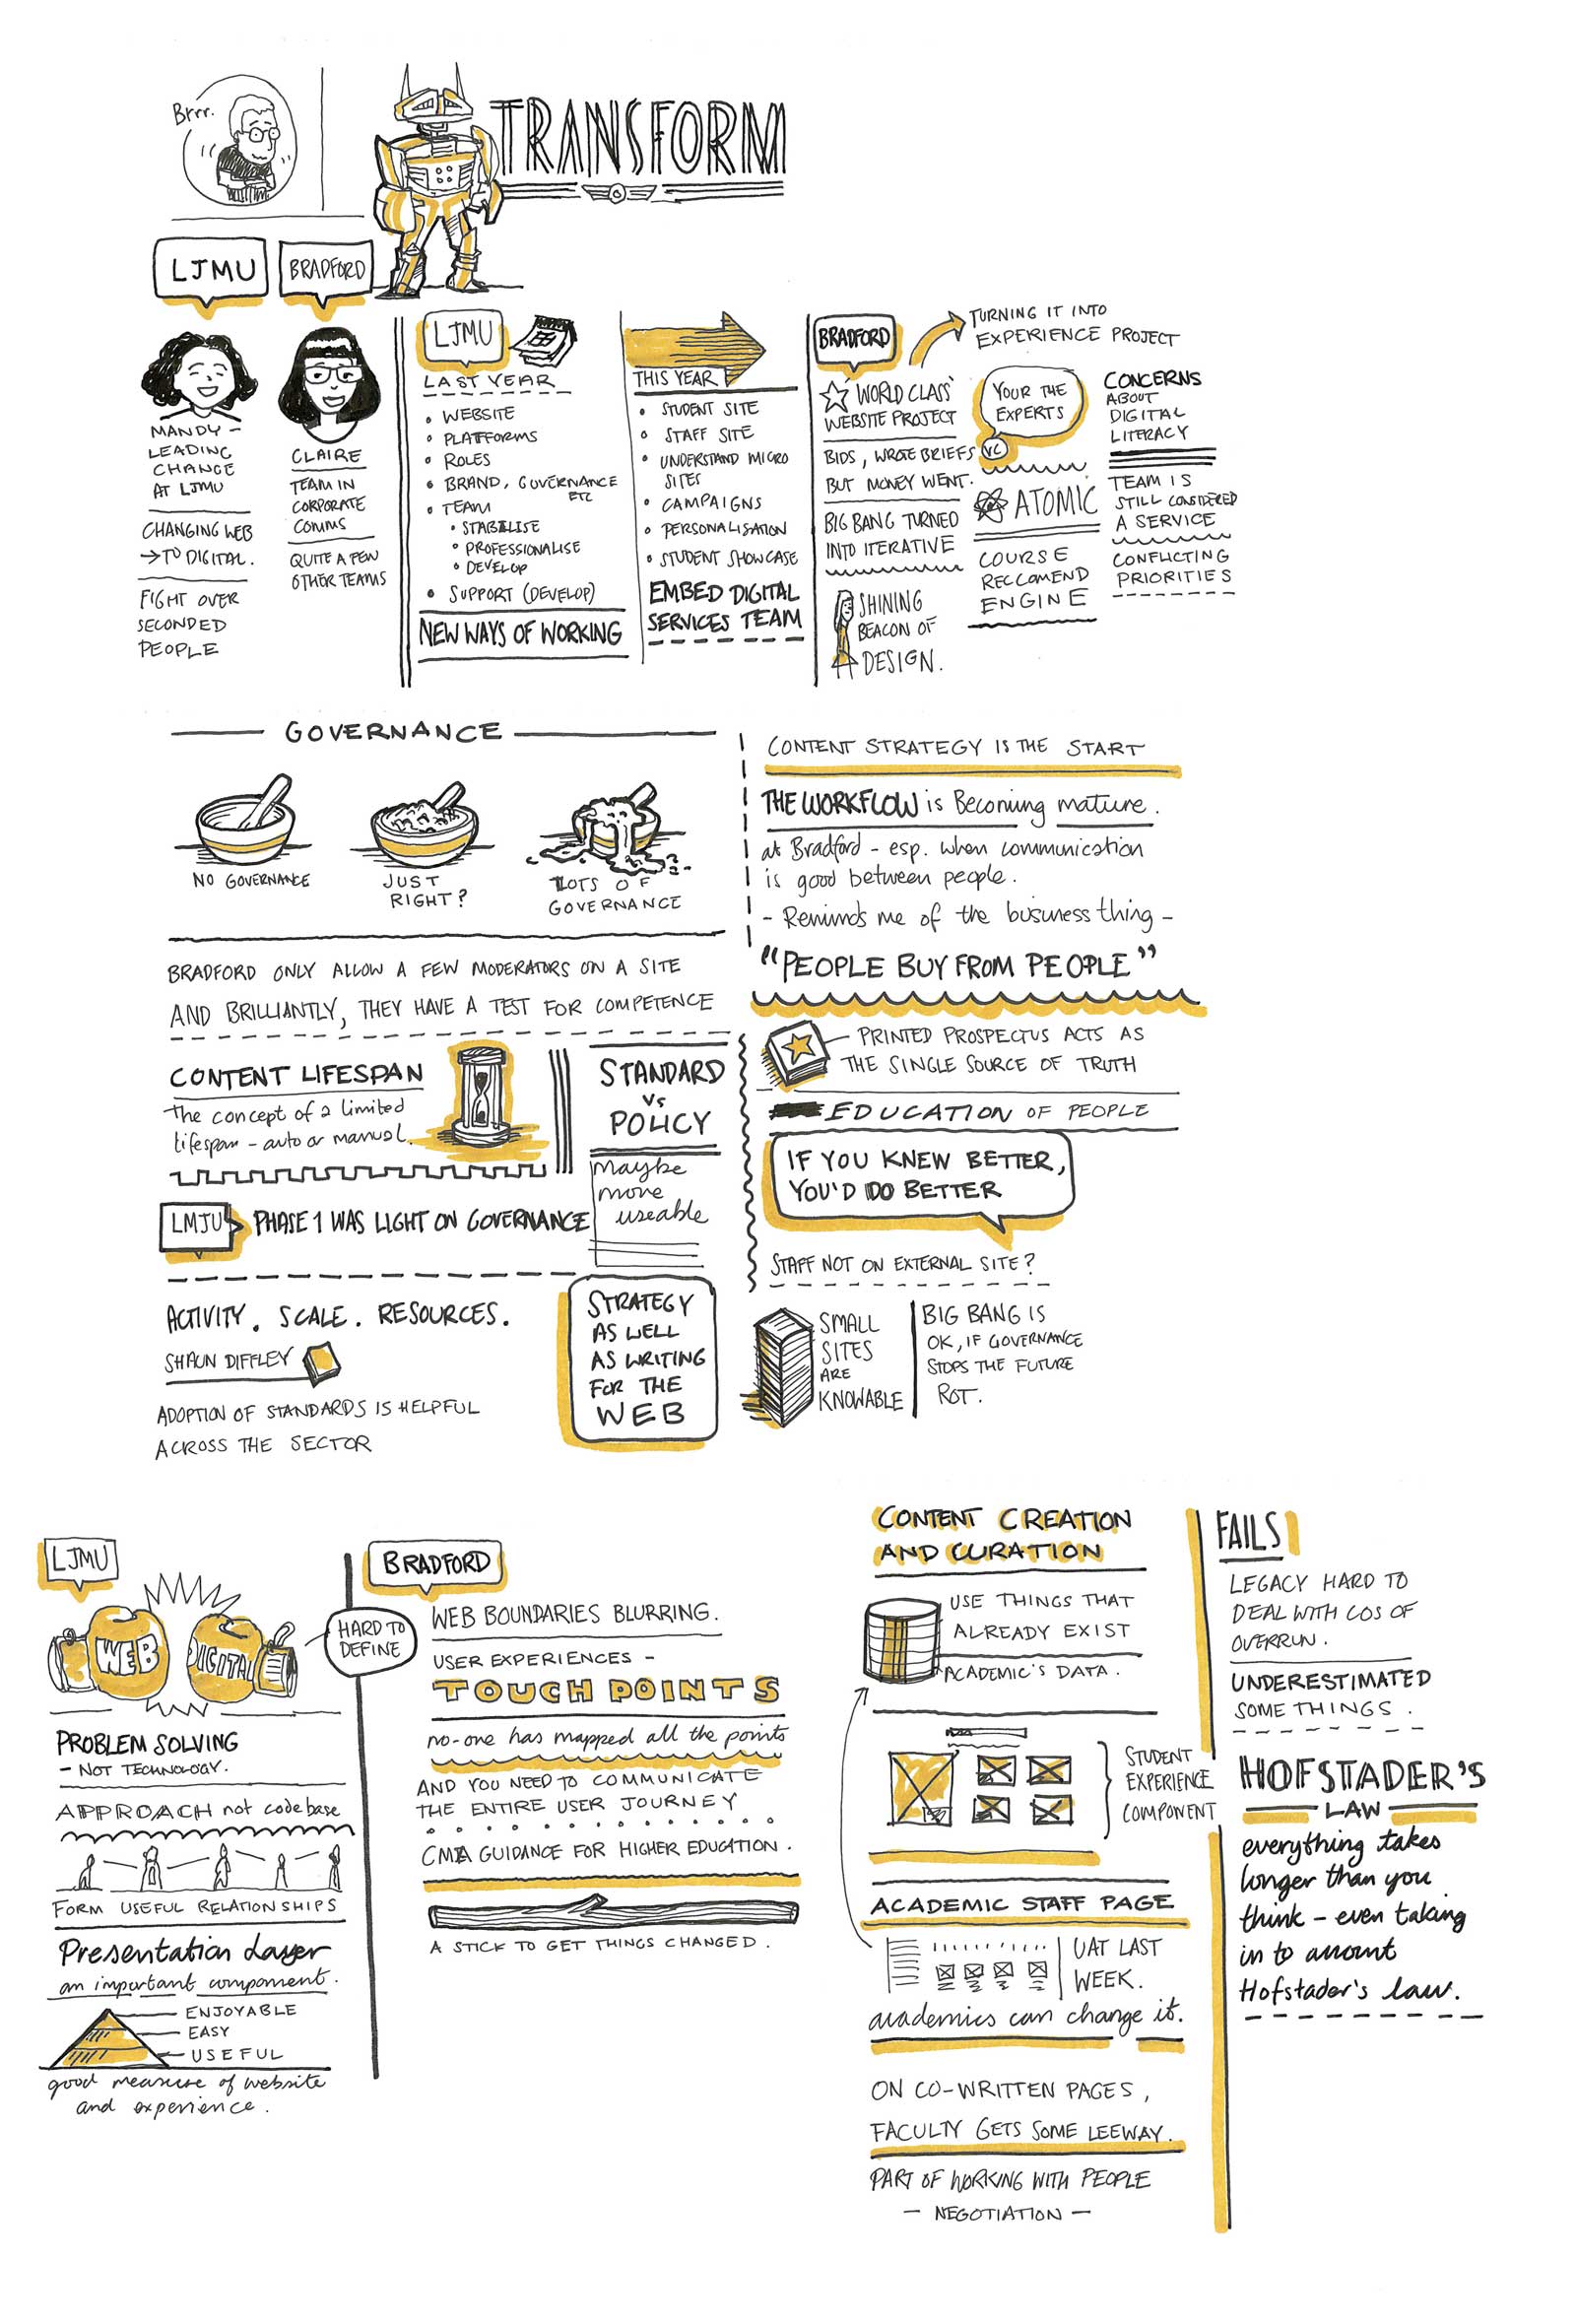 Brrr.
TRANSFORM
LJMU
BRADFORD
MANDY -
LEADING
CHANGE
AT LJMU
CHANGING WEB
→ TO DIGITAL.
FIGHT OVER
SECONDED
PEOPLE
CLAIRE
TEAM IN
CORPORATE
COMMS
QUITE A FEW
OTHER TEAMS
LJMU
LAST YEAR
• WEBSITE
• PLATFORMS
• ROLES
• BRAND, GOVERNANCE
ETC
• TEAM
• STABILISE
• PROFESSIONALISE
• DEVELOP
• SUPPORT (DEVELOP)
NEW WAYS OF WORKING
THIS YEAR
• STUDENT SITE
• STAFF SITE
• UNDERSTAND MICRO
SITES
• CAMPAIGNS
• PERSONALISATION
• STUDENT SHOWCASE
EMBED DIGITAL
SERVICES TEAM
BRADFORD
TURNING IT INTO
EXPERIENCE PROJECT
'WORLD CLASS'
WEBSITE PROJECT
BIDS, WROTE BRIEFS
BUT MONEY WENT.
BIG BANG TURNED
INTO ITERATIVE
SHINING
BEACON OF
DESIGN.
YOUR THE
EXPERTS
VC
ATOMIC
COURSE
RECCOMEND
ENGINE
CONCERNS
ABOUT
DIGITAL
LITERACY
TEAM IS
STILL CONSIDERED
A SERVICE
CONFLICTING
PRIORITIES
GOVERNANCE
NO GOVERNANCE
JUST
RIGHT?
LOTS OF
GOVERNANCE
BRADFORD ONLY ALLOW A FEW MODERATORS ON A SITE
AND BRILLIANTLY, THEY HAVE A TEST FOR COMPETENCE
CONTENT LIFESPAN
The concept of a limited
lifespan - auto or manual.
STANDARD
Vs
POLICY
Maybe
more
useable
LMJU
PHASE 1 WAS LIGHT ON GOVERNANCE
ACTIVITY. SCALE. RESOURCES.
SHAUN DIFFLEY
ADOPTION OF STANDARDS IS HELPFUL
ACROSS THE SECTOR
STRATEGY
AS WELL
AS WRITING
FOR THE
WEB
CONTENT STRATEGY IS THE START
THE WORKFLOW is Becoming mature.
at Bradford - esp. when communication
is good between people.
- Reminds me of the business thing -
"PEOPLE BUY FROM PEOPLE"
PRINTED PROSPECTUS ACTS AS
THE SINGLE SOURCE OF TRUTH
EDUCATION OF PEOPLE
IF YOU KNEW BETTER,
YOU'D DO BETTER
STAFF NOT ON EXTERNAL SITE?
SMALL
SITES
ARE
KNOWABLE
BIG BANG IS
OK, IF GOVERNANCE
STOPS THE FUTURE
ROT.
LJMU
WEB
DIGITAL
HARD TO
DEFINE
PROBLEM SOLVING
- NOT TECHNOLOGY.
APPROACH not codebase
FORM USEFUL RELATIONSHIPS
Presentation Layer
an important component.
ENJOYABLE
EASY
USEFUL
good measure of website
and experience.
BRADFORD
WEB BOUNDARIES BLURRING.
USER EXPERIENCES -
TOUCH POINTS
no-one has mapped all the points
AND YOU NEED TO COMMUNICATE
THE ENTIRE USER JOURNEY
CMA GUIDANCE FOR HIGHER EDUCATION.
A STICK TO GET THINGS CHANGED.
CONTENT CREATION
AND CURATION
USE THINGS THAT
ALREADY EXIST
ACADEMIC'S DATA.
STUDENT
EXPERIENCE
COMPONENT
ACADEMIC STAFF PAGE
UAT LAST
WEEK.
academics can change it.
ON CO-WRITTEN PAGES,
FACULTY GETS SOME LEEWAY.
PART OF WORKING WITH PEOPLE
- NEGOTIATION -
FAILS
LEGACY HARD TO
DEAL WITH COS OF
OVERRUN.
UNDERESTIMATED
SOME THINGS.
HOFSTADER'S
LAW
everything takes
longer than you
think - even taking
in to account
Hofstader's law.